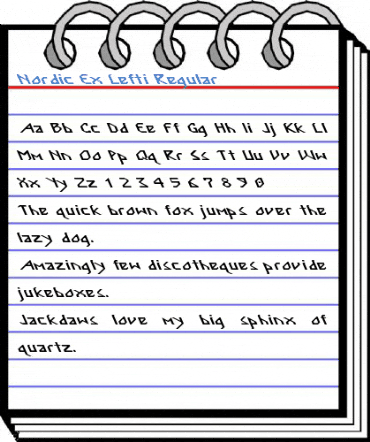 Nordic Ex Lefti Regular
Aa Bb Cc Dd Ee Ff Gg Hh Ii Jj Kk Ll
Mm Nn Oo Pp Qq Rr Ss Tt Uu Vv Ww
Xx Yy Zz 1 2 3 4 5 6 7 8 9 0
The quick brown fox jumps over the
lazy dog.
Amazingly few discotheques provide
jukeboxes.
Jackdaws love my big sphinx of
quartz.